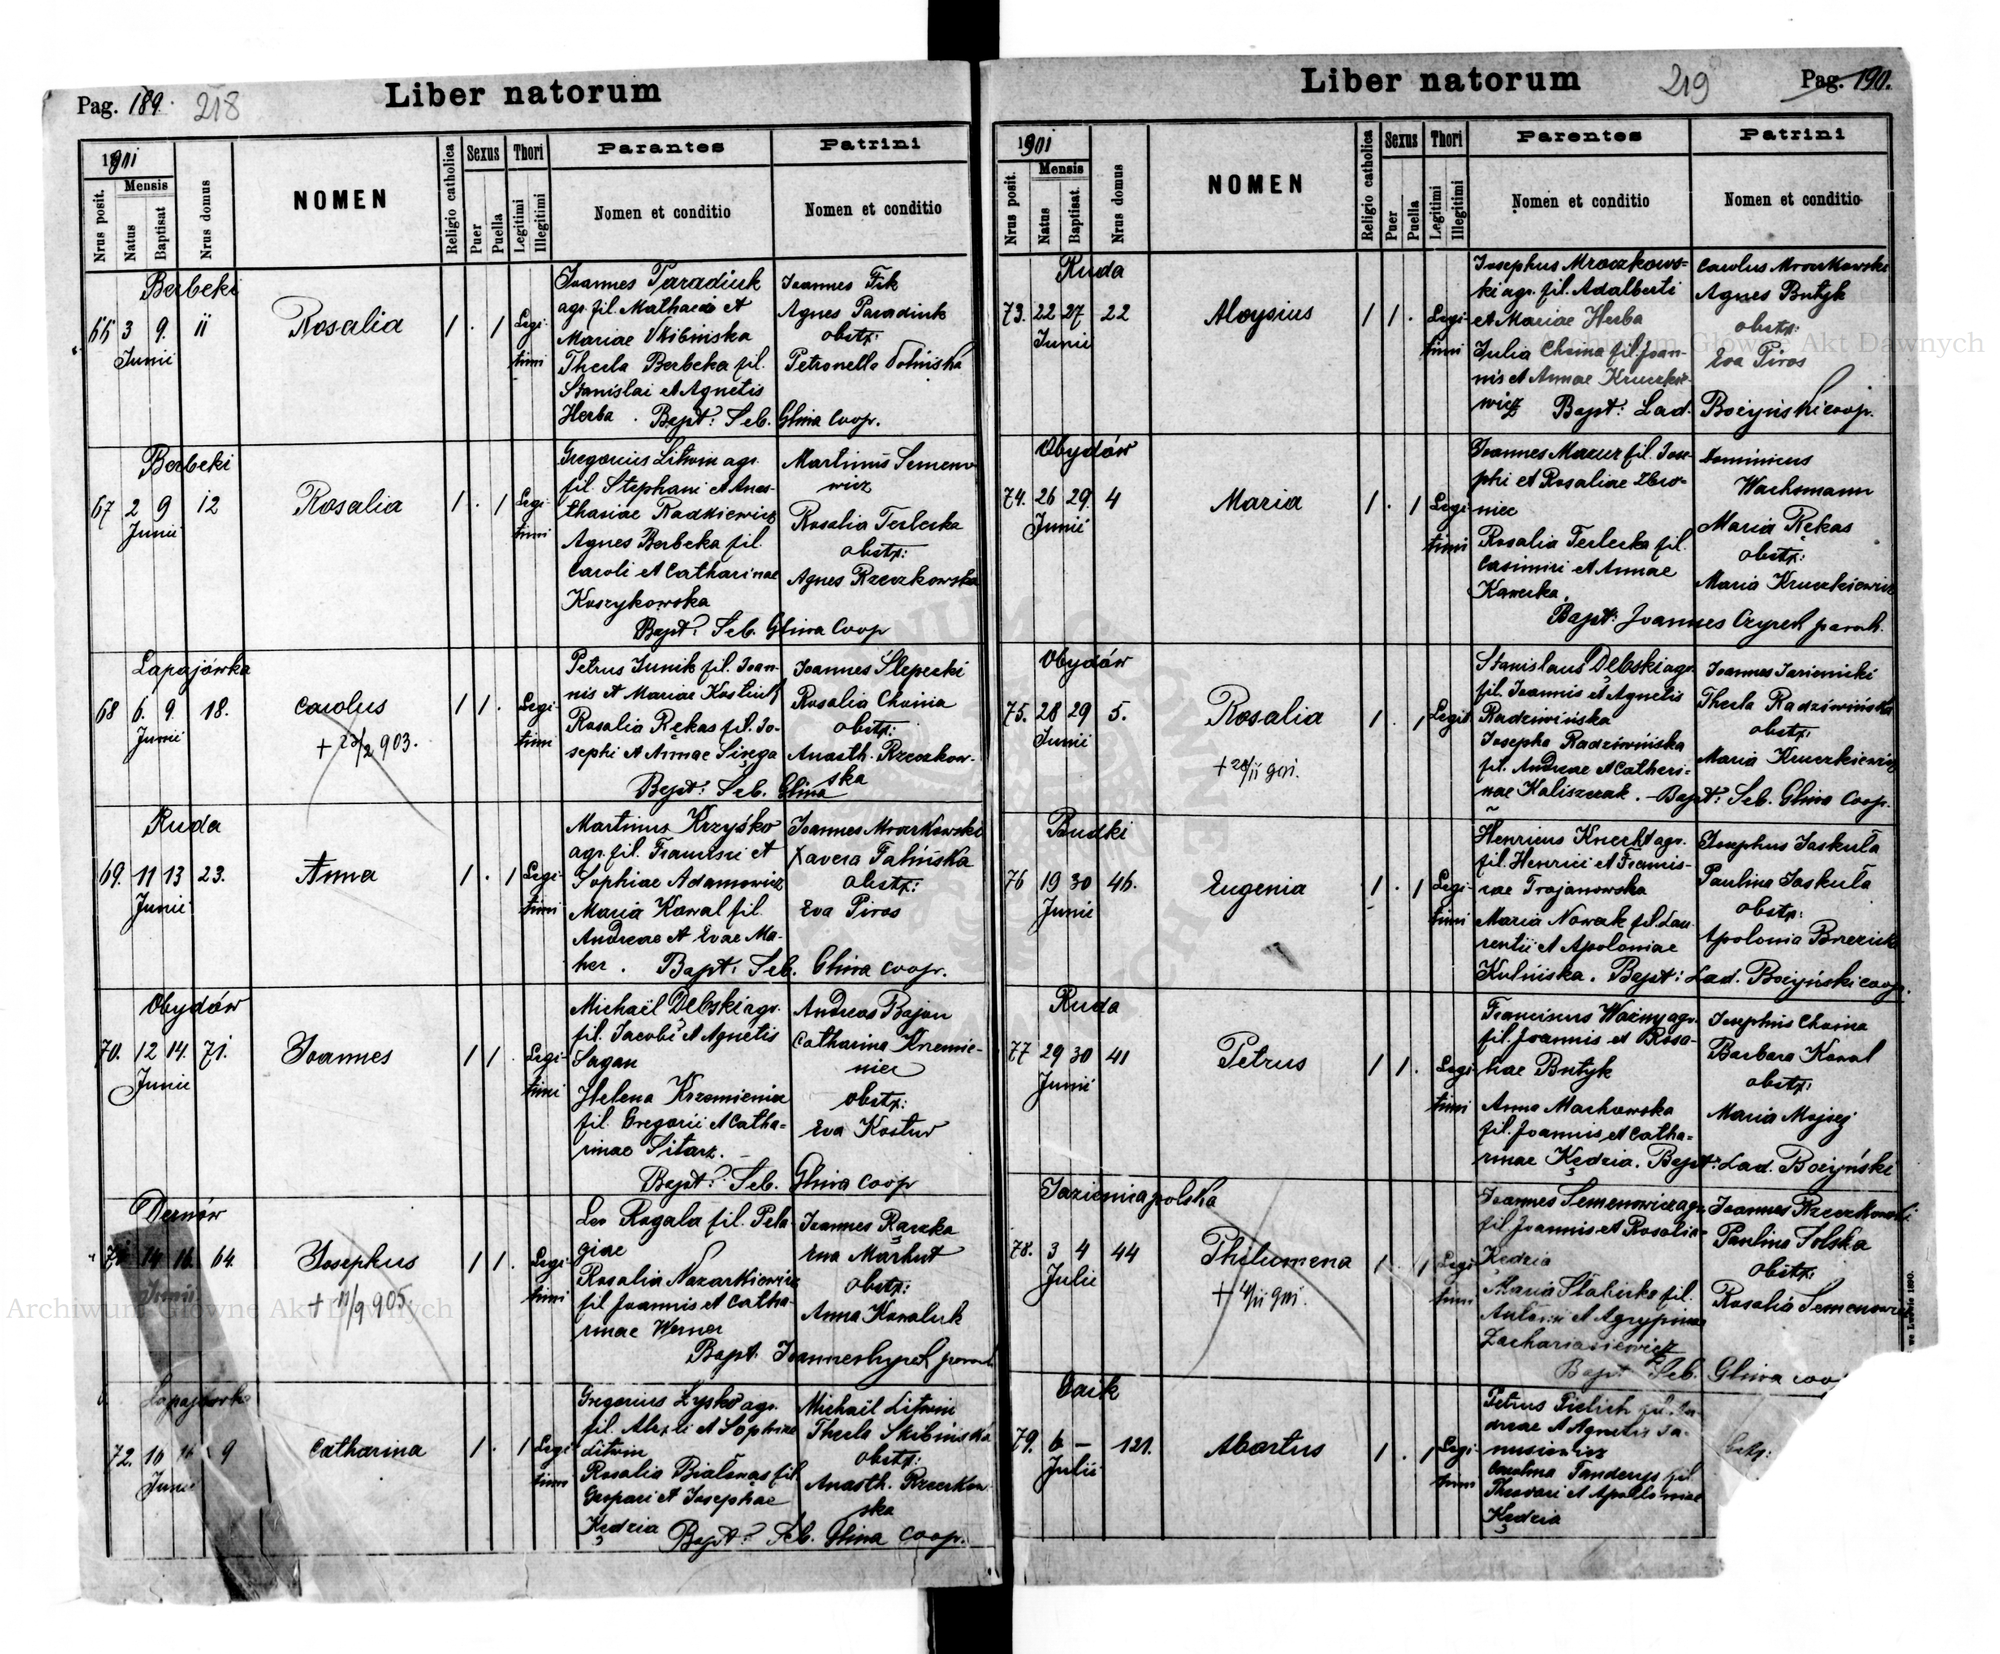 Pag. 189. 218
Liber natorum
1901
Nrus posit.
Mensis
Natus
Baptisat
Nrus domus
NOMEN
Religio catholica
Sexus
Puer
Puella
Thori
Legitimi
Illegitimi
Parantes
Nomen et conditio
Patrini
Nomen et conditio
Berbeki
3 9. 11
Junii
Rosalia
1 . 1
Legi-
timi
Joannes Paradiuk
agr. fil. Mathaei et
Mariae Skibińska
Thecla Berbeka fil.
Stanislai et Agnetis
Herba . Bapt: Seb. Gliwa Coop.
Joannes Fik
Agnes Paradiuk
obstz:
Petronella
Berbeki
67 2 9 12
Junii
Rosalia
1 . 1
Legi-
timi
Gregorius Litwin agr.
fil. Stephani et Anas-
thasiae Radkiewicz
Agnes Berbeka fil.
Caroli et Catharinae
Koszykowska
Bapt: Seb. Gliwa Coop
Martinus Semeno
wicz
Rosalia Terlecka
obstz:
Agnes Rzeczkowska
Łapajówka
68 6. 9. 18.
Junii
Carolus
+ 23/2 903.
1 1 .
Legi-
timi
Petrus Junik fil. Joan-
nis et Mariae
Rosalia Rękas fil. Jo-
sephi et Annae
Bapt: Seb. Gliwa
Joannes Ślepecki
Rosalia Choina
obstz:
Anasth. Rzeczkow-
ska
Ruda
69. 11 13 23.
Junii
Anna
1 . 1
Legi-
timi
Martinus Krzyśko
agr. fil. Francisci et
Sophiae Adamowicz
Maria Kowal fil.
Andreae et Evae Ma-
her . Bapt: Seb. Gliwa Coop.
Joannes Mroczkowski
Xavera Talińska
obstz:
Eva Piros
Obydów
70. 12 14. 71.
Junii
Joannes
1 1 .
Legi-
timi
Michaël Dębski agr.
fil. Jacobi et Agnetis
Sagan
Helena Krzemieniec
fil. Gregorii et Catha-
rinae Sitarz.
Bapt: Seb. Gliwa Coop
Andreas Bajan
Catharina Krzemie-
niec
obstz:
Eva Kostur
Dernów
71. 14 16. 64.
Junii
Josephus
+ 11/9 905
1 1 .
Legi-
timi
Leo Rogala fil. Pela-
giae
Rosalia Nazarkiewicz
fil Joannis et Catha-
rinae Werner
Bapt. Joannes Czyrek paroch
Joannes Rączka
Ewa Markut
obstz:
Anna Kowaluk
Łapajówka
72. 16 16 9
Junii
Catharina
1 . 1
Legi-
timi
Gregorius Łysko agr.
fil. et Sophiae
Litwin
Rosalia Białonas fil
Gaspari et Josephae
Kędzia Bapt: Seb. Gliwa Coop.
Michail Litwin
Thecla Skibińska
obstz:
Anasth. Rzeczkow-
ska
Liber natorum
219 Pag. 190.
1901
Nrus posit.
Mensis
Natus
Baptisat.
Nrus domus
NOMEN
Religio catholica
Sexus
Puer
Puella
Thori
Legitimi
Illegitimi
Parentes
Nomen et conditio
Patrini
Nomen et conditio
Ruda
73. 22 27 22
Junii
Aloysius
1 1 .
Legi-
timi
Josephus Mroczkows-
ki agr. fil. Adalberti
et Mariae Herba
Julia Choma fil. Joan-
nis et Annae Kruczkie-
wicz Bapt: Lad. Bocyński coop.
Carolus Mroczkowski
Agnes Butyk
obstz:
Eva Piros
Obydów
74. 26 29. 4
Junii
Maria
1 . 1
Legi-
timi
Joannes Mazur fil. Jose-
phi et Rosaliae Zbro-
niec
Rosalia Terlecka fil.
Casimiri et Annae
Kawecka.
Bapt: Joannes Czyrek paroch.
Dominicus
Wachsmann
Maria Rękas
obstz:
Maria Kruczkiewicz
Obydów
75. 28 29 5.
Junii
Rosalia
+ 28/II 901.
1 . 1
Legit
Stanislaus Dębski agr.
fil. Joannis et Agnetis
Radziwińska
Josepha Radziwińska
fil. Andreae et Cathari-
nae Kaliszczak. – Bapt: Seb. Gliwa Coop.
Joannes Jasienicki
Thecla Radziwińska
obstz:
Maria Kruczkiewicz
Budki
76 19 30 46.
Junii
Eugenia
1 . 1
Legi-
timi
Henricus Knecht agr.
fil. Henrici et Francis-
cae Trojanowska
Maria Nowak fil. Lau-
rentii et Apoloniae
Kulińska. Bapt: Lad. Bocyński coop.
Josephus Jaskuła
Paulina Jaskuła
obstz:
Apolonia
Ruda
77 29 30 41
Junii
Petrus
1 1 .
Legi-
timi
Franciscus Ważny agr.
fil. Joannis et Rosa-
liae Butyk
Anna Machowska
fil. Joannis et Catha-
rinae Kędzia. Bapt: Lad. Bocyński
Josephus Choina
Barbara Kowal
obstz:
Maria Mojsej
Jazienica polska
78. 3 4 44
Julii
Philumena
+ 4/II 901.
1 . 1
Legi-
timi
Joannes Semenowicz agr.
fil. Joannis et Rosalia-
Kędzia
Maria Stahirka fil.
Antonii et Agrypinae
Zachariasiewicz
Bapt Seb. Gliwa coo
Joannes Rzeczkowski
Paulina Polska
obstz:
Rosalia Semenowicz
Gaik
79. 6 – 121.
Julii
Abortus
1 . 1
Legi-
timi
Petrus Pielich fil. An-
dreae et Agnetis Ja-
nusiewicz
Carolina Tanderys fil.
Theodori et Apolloniae
Kędzia
obstz:
we Lwowie 1890.
Archiwum Główne Akt Dawnych
Archiwum Główne Akt Dawnych